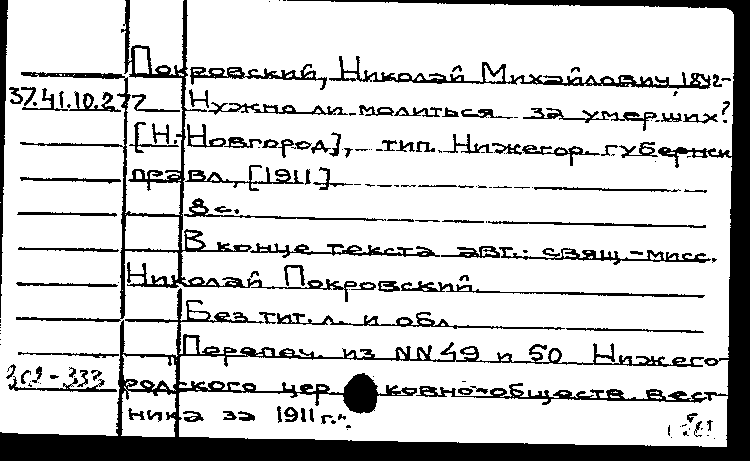 Покровский, Николай Михайлович, 1842-
37.41.10.277 Нужно ли молиться за умерших?
[Н.-Новгород], тип. Нижегор. губернск
правл., [1911].
8 с.
В конце текста авт.: свящ.-мисс.
Николай Покровский.
Без тит. л. и обл.
Перепеч. из NN 49 и 50 Нижего-
302-333 родского церковно-обществ. вест-
ника за 1911 г.".